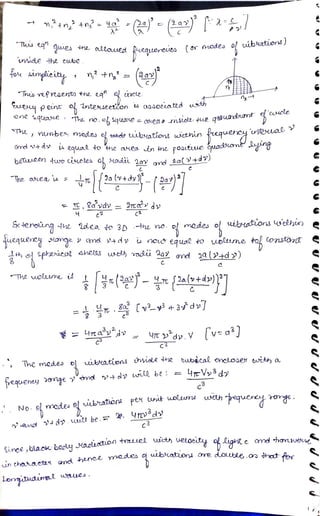 → n₁² + n₂² + n₃² = 4a²/λ² = (2a/λ)² = (2aν/c)² [∵ λ = c/ν]
This eqⁿ gives the allowed frequencies (or modes of vibrations)
inside the cube.
for simplicity, n₁² + n₂² = (2aν/c)²
This represents the eqⁿ of circle
Every point of intersection is associated with
one square. The no. of square = area inside the quadrant of circle
The, number modes of vibration within frequency interval ν
and ν+dν is equal to the area in the positive quadrant lying
between two circles of radii 2aν/c and 2a(ν+dν)/c
The area is = 1/4 π [{2a(ν+dν)/c}² - {2aν/c}²]
= π/4 · 8a²νdν/c² = 2πa²ν dν/c²
Extending the idea to 3D the no. of modes of vibrations within
frequency range ν and ν+dν is now equal to volume of
1/8 th of spherical shells with radii 2aν/c and 2a(ν+dν)/c
The volume is 1/8 [4/3 π (2aν/c)³ - 4/3 π {2a(ν+dν)/c}³]
= 1/8 · 4/3 π · 8a³/c³ [ν³ - ν³ + 3ν² dν]
= 4πa³ν²dν/c³ = 4πν²dν/c³ · V [V = a³]
∴ The modes of vibrations inside the cubical encloser with a
frequency range ν and ν+dν will be = 4πVν²dν/c³
∴ No. of modes of vibrations per unit volume with frequency range
ν and ν+dν will be = 4πν²dν/c³
Since, black body radiation travel with velocity of light c and transverse
in character and hence modes of vibrations are double, as that for
longitudinal waves.